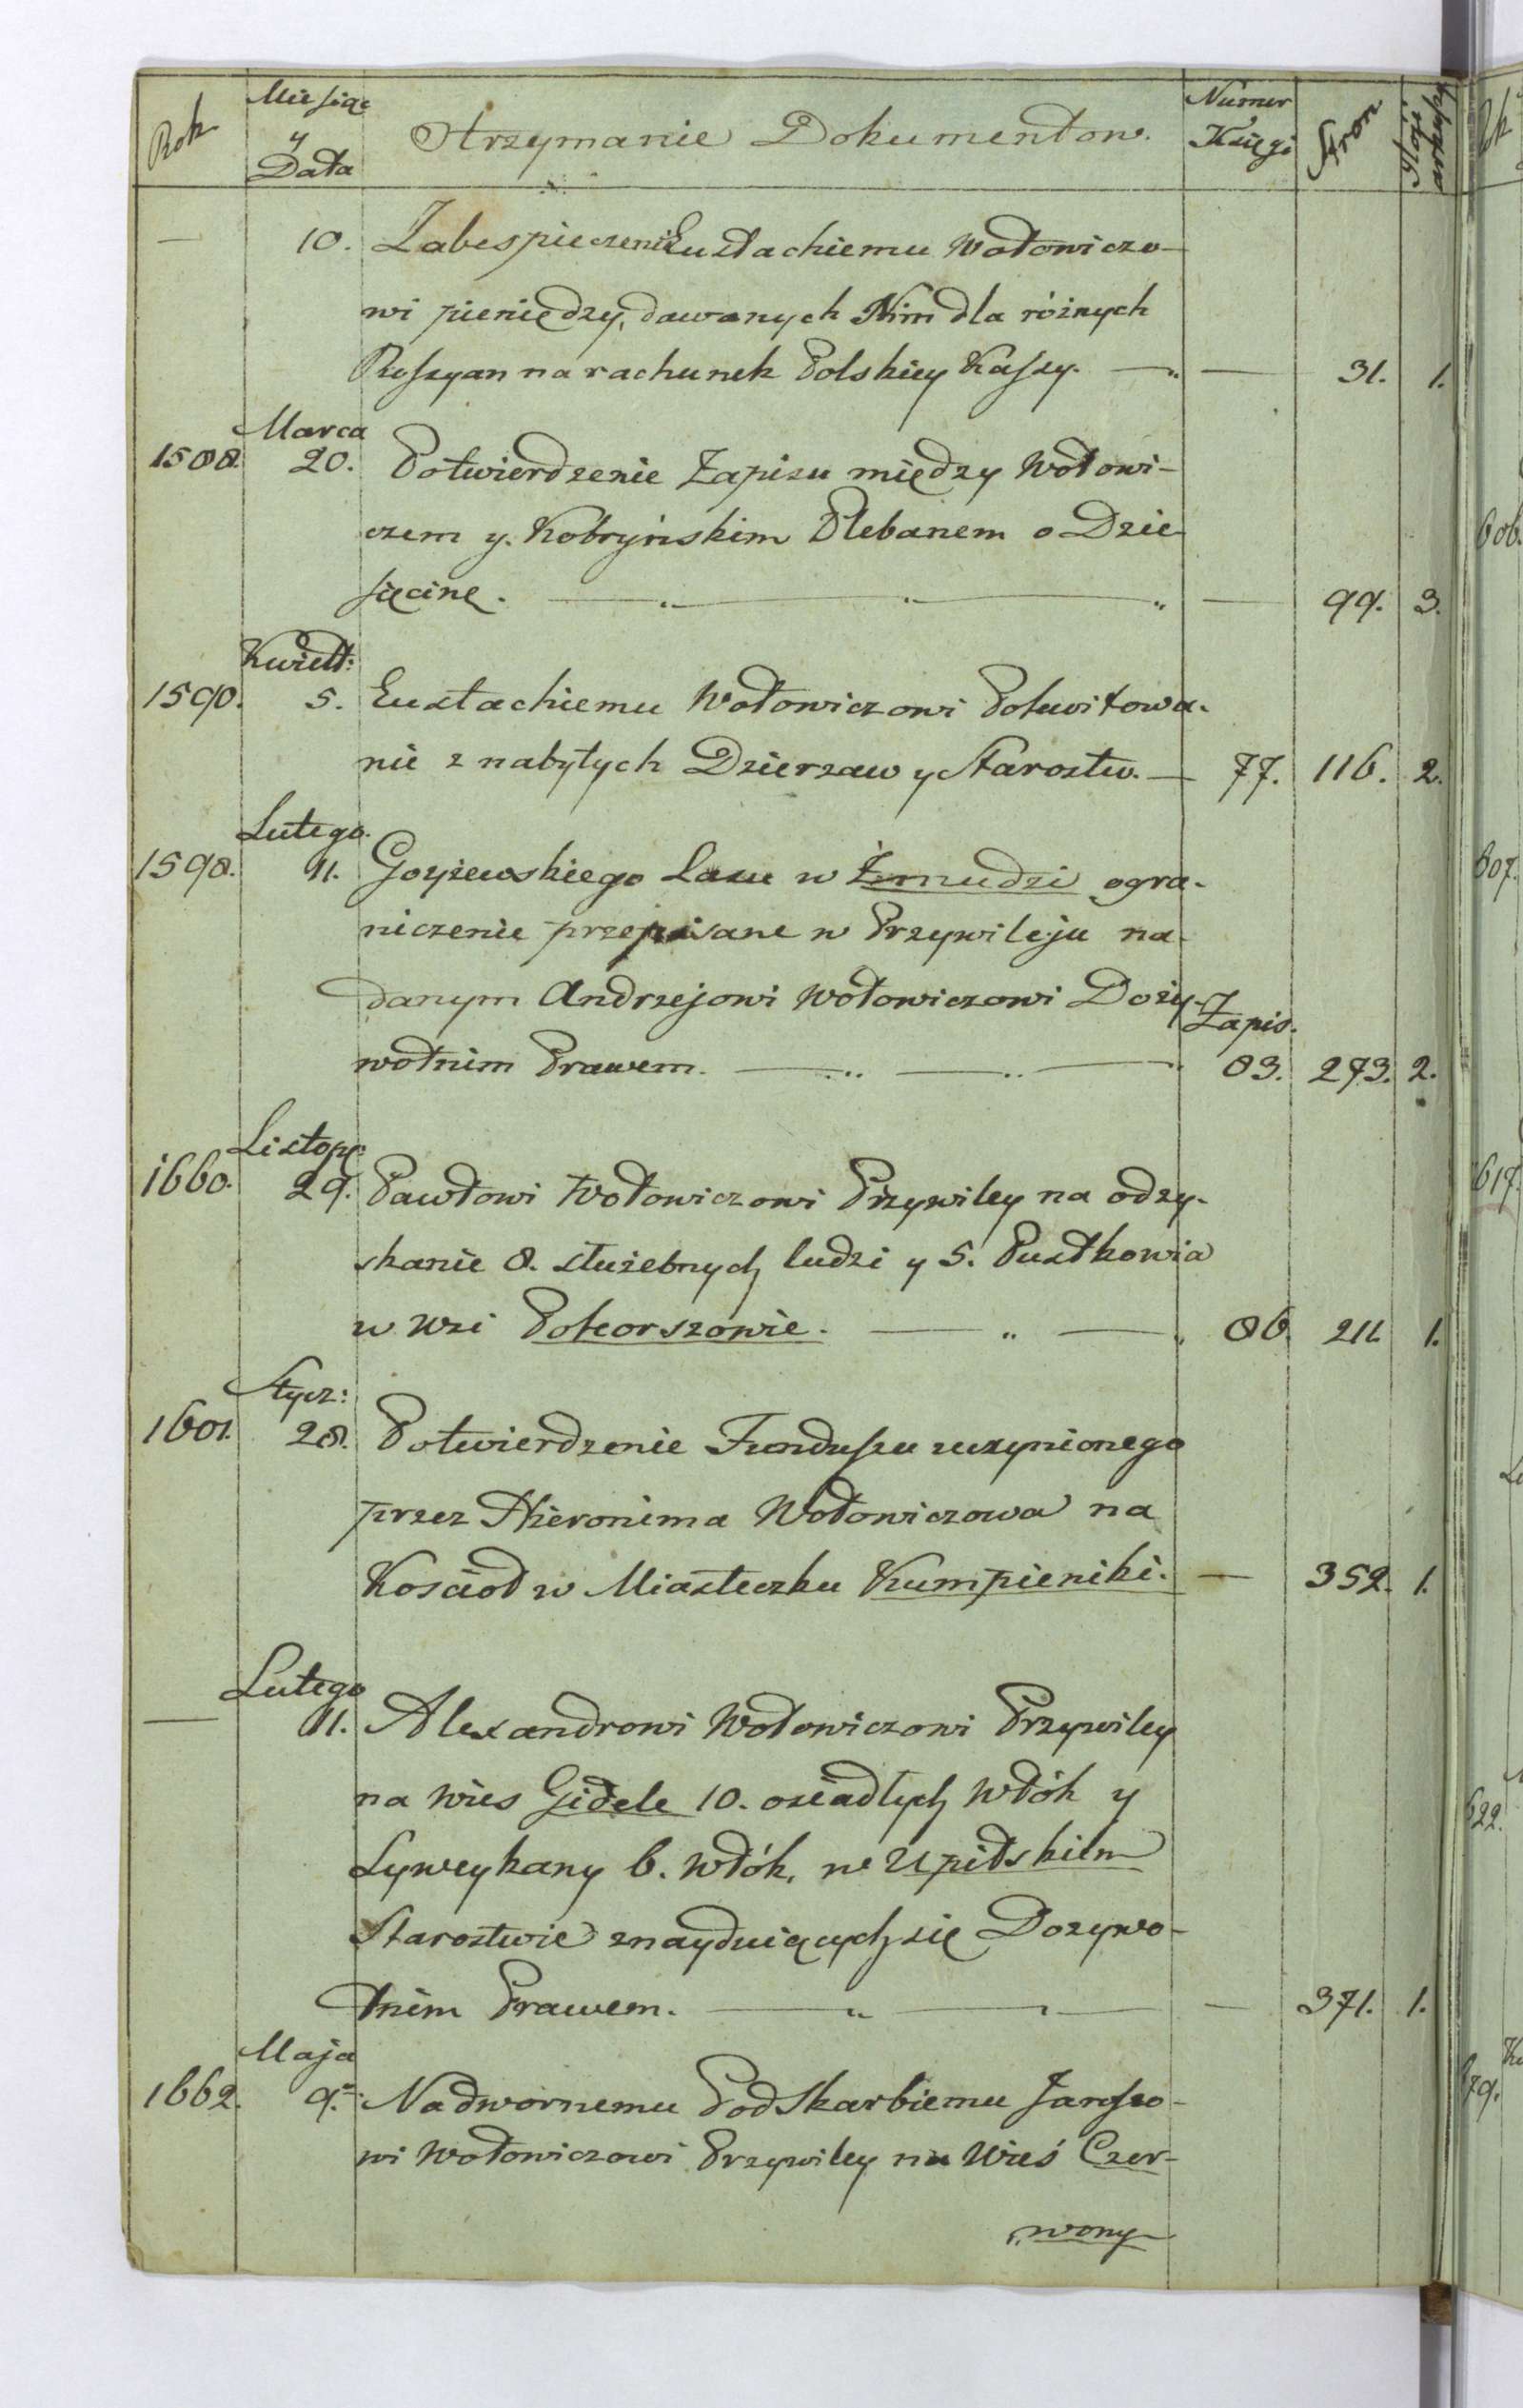 Rok
Miesiąc
y
Data
Otrzymanie Dokumentow.
Numer
Księgi
Stron
— 10. Zabespieczenie Eustachiemu Wołowiczo-
wi pieniędzy, dawanych Nim dla różnych
Rossyan na rachunek Polskiey Kassy. — — 31. 1.
Marca
1588. 20. Potwierdzenie Zapisu między Wołowi-
czem y. Kobryńskim Plebanem o Dzie-
sięcinę. — — 99. 3.
Kwiet:
1590. 5. Eustachiemu Wołowiczowi Pokwitowa-
nie z nabytych Dzierzaw y Starostw. — 77. 116. 2.
Lutego.
1598. 11. Gozżewskiego Lasu w Żmudzi ogra-
niczenie przepisane w Przywileju na-
danym Andrzejowi Wołowiczowi Doży-
Zapis.
wotnim Prawem. — 83. 273. 2.
Listop:
1660. 29. Pawłowi Wołowiczowi Przywiley na odzy-
skanie 8. służebnych ludzi y 5. Pustkowia
w Wsi Pokorszowie. — 86. 211. 1.
Stycz:
1601. 28. Potwierdzenie Funduszu uczynionego
przez Hieronima Wołowiczowa na
Kościoł w Miasteczku Kumpieniki. — 352. 1.
Lutego
— 11. Alexandrowi Wołowiczowi Przywiley
na Wies Gidele 10. osiadłych Włók y
Lyweykany 6. Włók, we Upitskim
Starostwie znayduiących się Dozywo-
tnim Prawem. — — 371. 1.
Maja
1662. 9. Nadwornemu PodSkarbiemu Jaroszo-
wi Wołowiczowi Przywiley na Wieś Czer-
wony